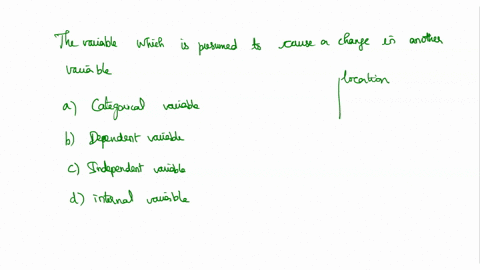 The variable which is presumed to cause a change in another
variable
location
a) Categorical variable
b) Dependent variable
c) Independent variable
d) internal variable